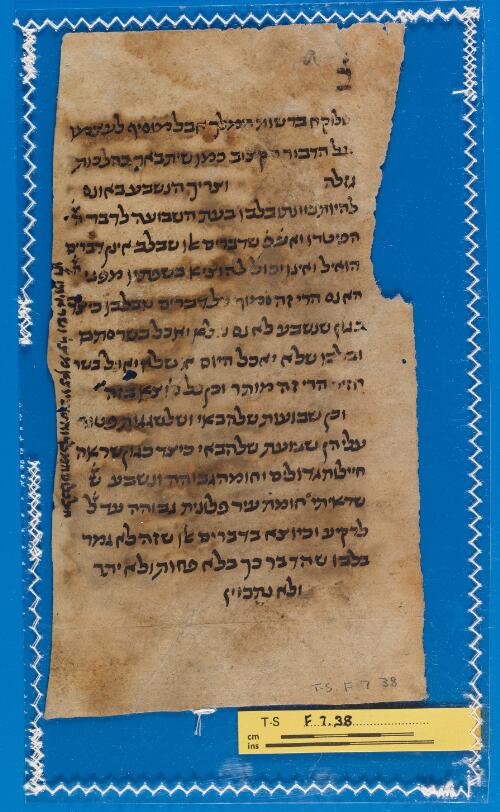 שלוקח ברשות המלך אבל מוסיף לעצמו
על הדבר הקצוב כמו שיתבאר בהלכות
גזלה וצריך הנשבע באונס
להיות כוונתו בלבו בעת השבועה לדבר ה
הפוטרו ואע״פ שדברים שבלב אינן דברים
הואיל ואינו יכול להוציא בשפתיו מפני
האנס הרי זה סומך על דברים שבלבו כיצד
כגון שנשבע לאנס שלא יאכל בשר סתם
ובלבו שלא יאכל היום או שלא יאכל בשר
חזיר הרי זה מותר וכן כל כיוצא בזה
וכן שבועות של הבאי ושל שגגות פטור
עליהן שבועת של הבאי כיצד כגון שראה
חיילות גדולים וחומה גבוהה ונשבע ש
שראיתי חומת עיר פלונית גבוהה עד ל
לרקיע וכיוצא בדברים אלו שזה לא גמר
בלבו שהדבר כך בלא פחות ולא יתר
ולא נתכוין
T-S. F 7 38
T-S F.7.38
cm
ins